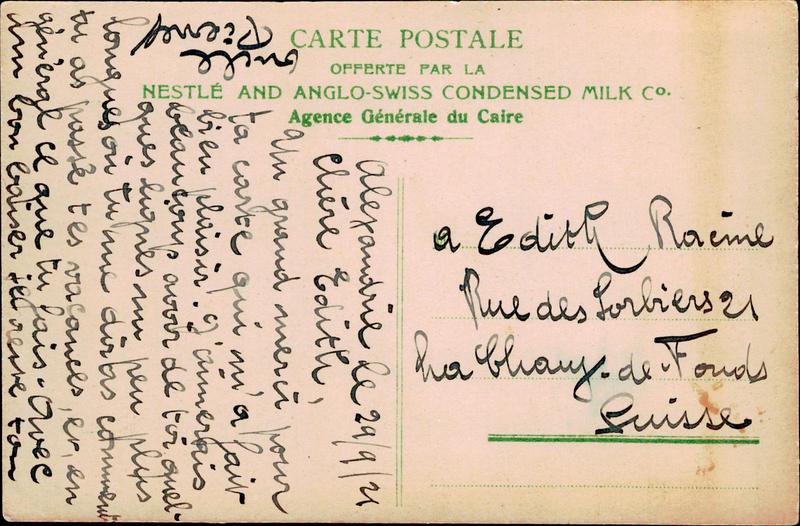 CARTE POSTALE
OFFERTE PAR LA
NESTLÉ AND ANGLO-SWISS CONDENSED MILK Co.
Agence Générale du Caire
Alexandrie le 29/9/21
Chère Edith,
Un grand merci pour
ta carte qui m'a fait
bien plaisir. J'aimerais
beaucoup avoir de toi quel-
ques lignes un peu plus
longues où tu me diras comment
tu as passé tes vacances, et, en
général ce que tu fais. Avec
un bon baiser je reste ton
a Edith Racine
Rue des Sorbiers 21
La Chaux-de-Fonds
Suisse